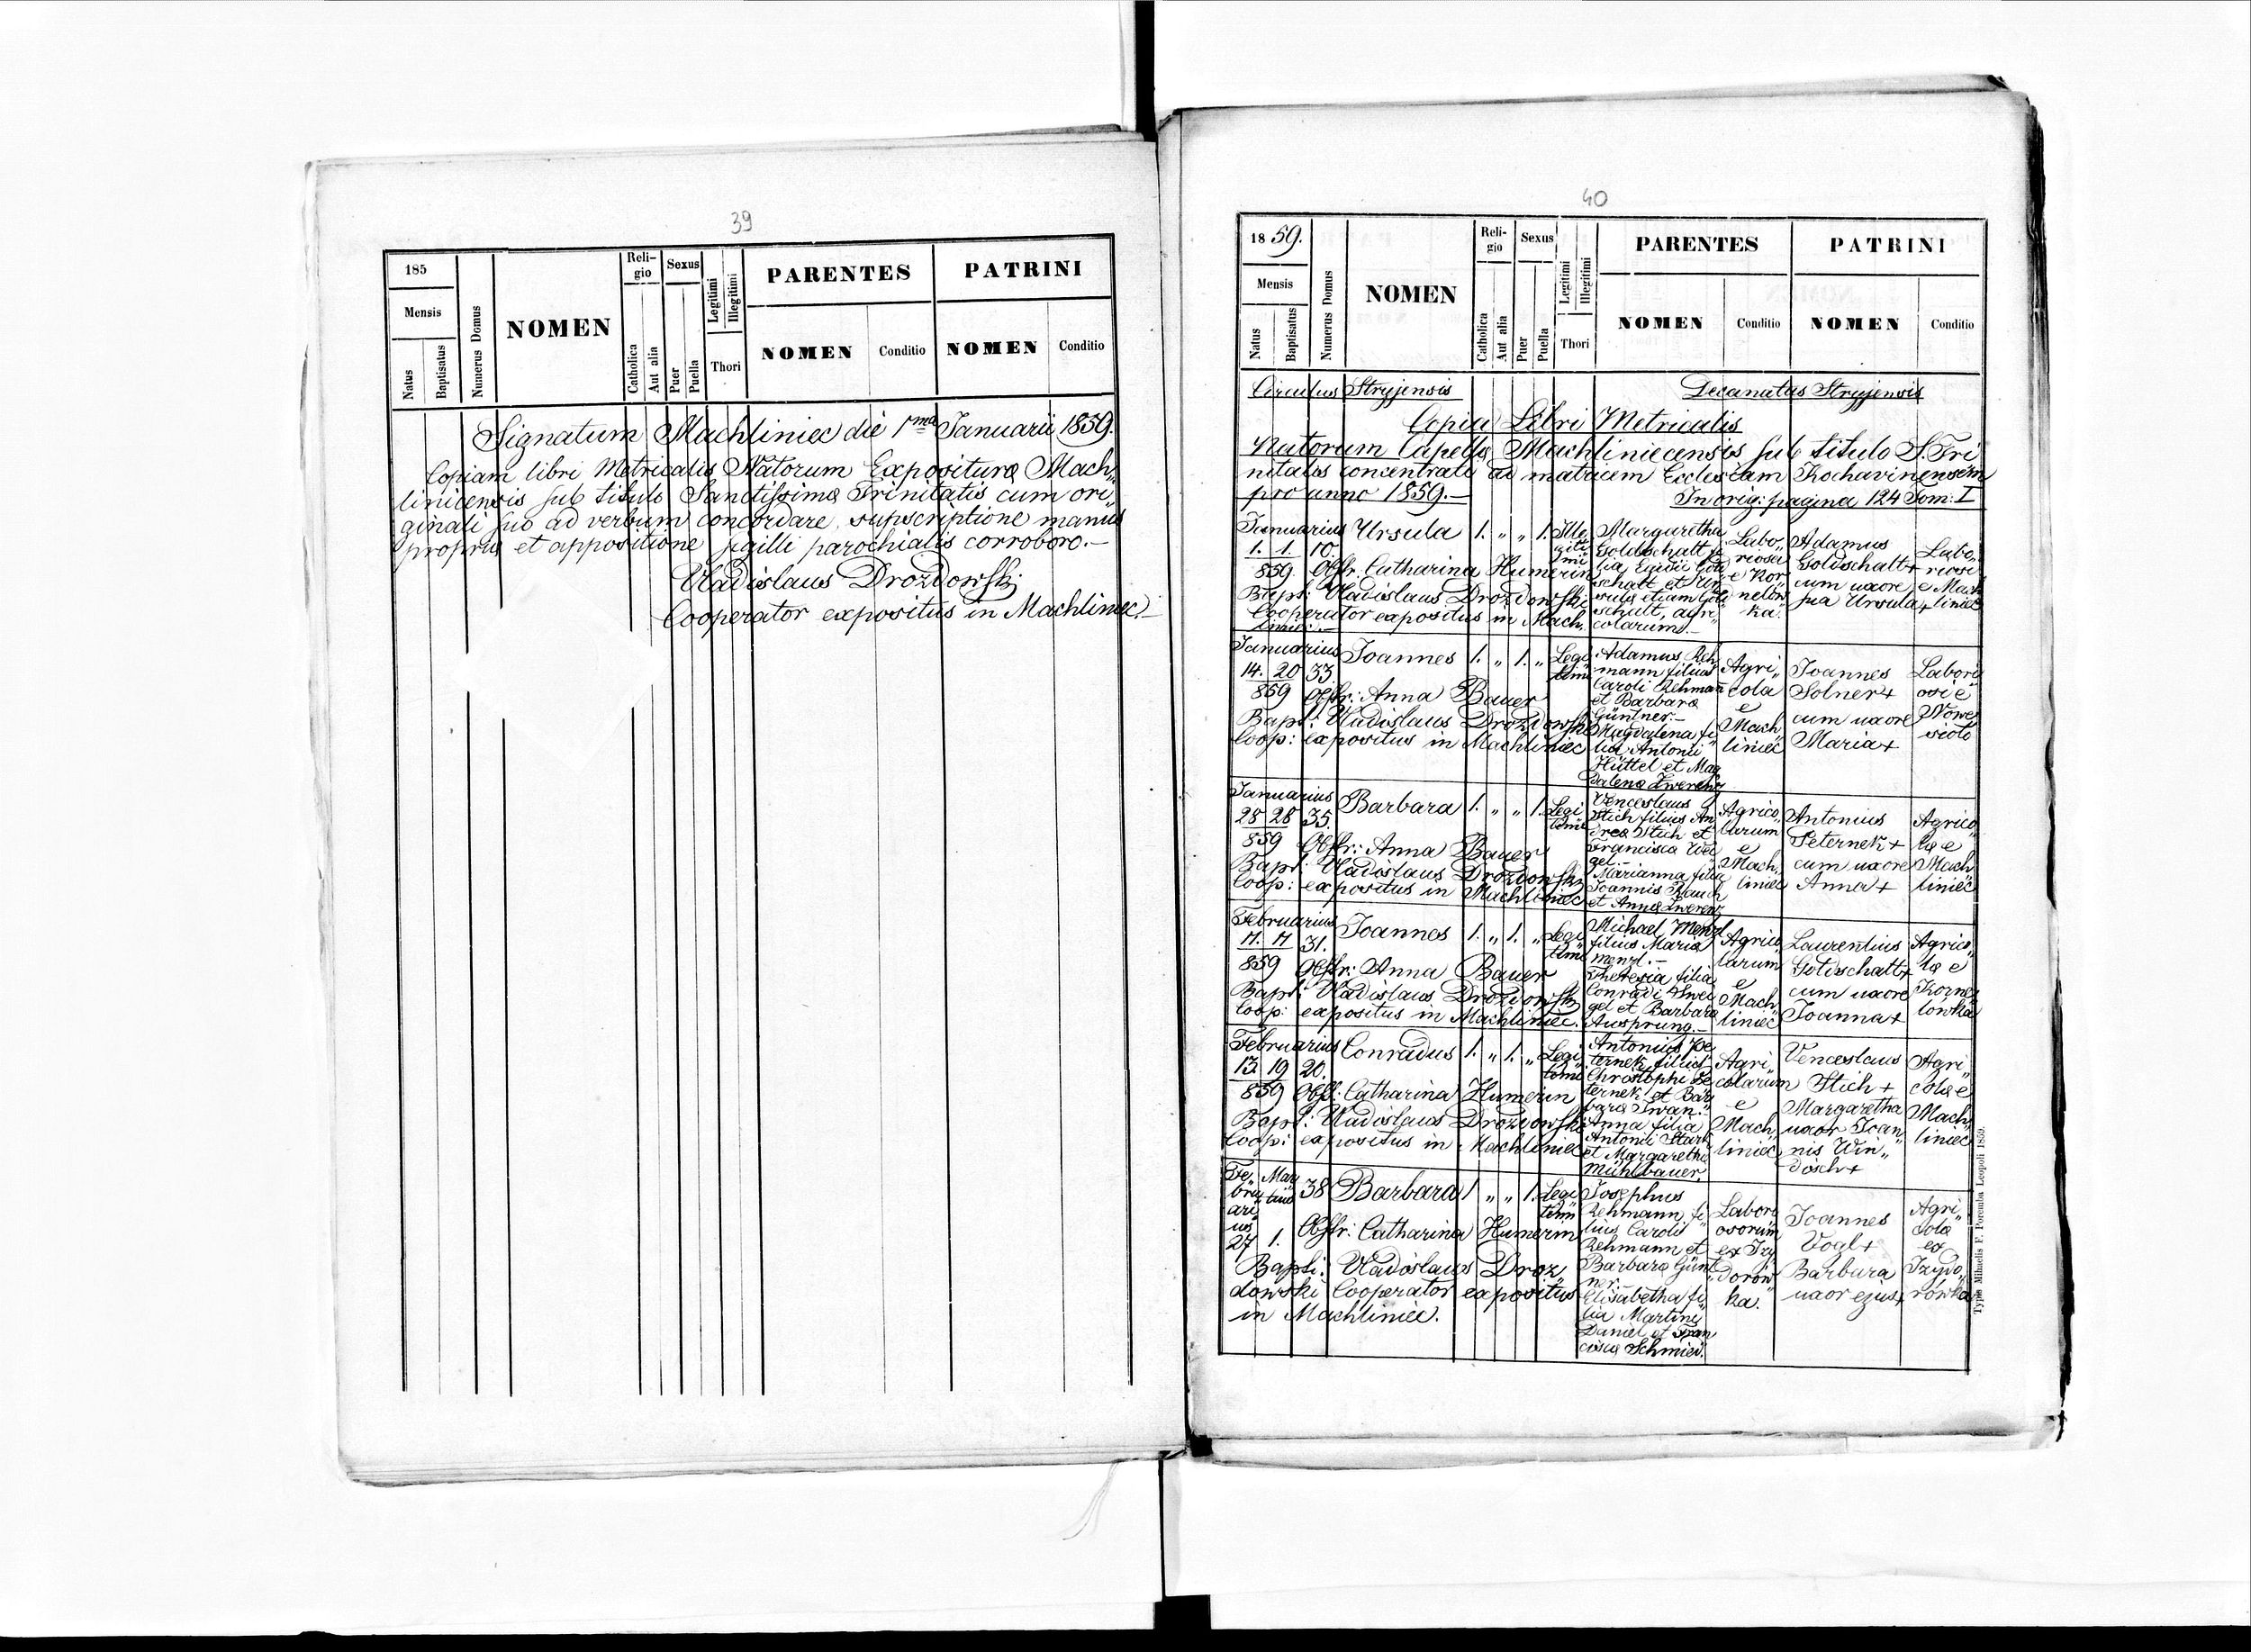 39
185
Mensis
Natus
Baptisatus
Numerus Domus
NOMEN
Reli-
gio
Catholica
Aut alia
Sexus
Puer
Puella
Legitimi
Illegitimi
Thori
PARENTES
NOMEN
Conditio
PATRINI
NOMEN
Conditio
Signatum Machliniec die 1ma Januarii 1859.
Copiam libri Metricalis Natorum Expositurae Mach„
linicensis sub titulo Sanctissimae Trinitatis cum ori„
ginali suo ad verbum concordare, supscriptione manus
propriae et appositione sigilli parochialis corroboro.—
Vladislaus Drozdowski
Cooperator expositus in Machliniec.—
40
1859.
Mensis
Natus
Baptisatus
Numerus Domus
NOMEN
Reli-
gio
Catholica
Aut alia
Sexus
Puer
Puella
Legitimi
Illegitimi
Thori
PARENTES
NOMEN
Conditio
PATRINI
NOMEN
Conditio
Circulus Stryjensis
Decanatus Stryjensis
Copia Libri Metricalis
Natorum Capellae Machliniecensis sub titulo S. Tri
nitatis concentratae ad matricem Ecclesiam Kochavinensem
pro anno 1859.—
In orig: pagina 124 Tom: I
Januarius
1. 1. 10.
859
Ursula 1. „ „ 1. Ille
giti
mi
Obstr. Catharina Humerin
Bapt: Vladislaus Drozdowski
Cooperator expositus in Mach„
liniec.—
Margaretha
Goldschalt fi
lia Egidii Gold
schalt et Ur
sulae etiam Gold
schalt, agri„
colarum.—
Labo„
riosa
e Kor
nelów
ka.
Adamus
Goldschalt +
cum uxore
sua Ursula +
Labo„
riosi
e Mach
liniec
Januarius
14. 20 33.
859
Joannes 1. „ 1. „ Legi
timi
Obstr: Anna Bauer
Bapt: Vladislaus Drozdowski
Coop: expositus in Machliniec
Adamus Reh
mann filius
Caroli Rehman
et Barbarae
Güntner.—
Magdalena fi
lia Antonii
Hüttel et Mag
dalenae Zwerenz
Agri„
cola
e
Mach„
liniec
Joannes
Solner +
cum uxore
Maria +
Labori
osi e
Nowe
sioło
Januarius
28 28 35.
859
Barbara 1. „ „ 1. Legi
timi
Obstr: Anna Bauer
Bapt: Vladislaus Drozdowski
Coop: expositus in Machliniec
Venceslaus
Stich filius An
dreae Stich et
Francisca Wei
gel.—
Marianna filia
Joannis Rauch
et Annae Zwerenz
Agrico„
larum
e
Mach„
liniec
Antonius
Peternek +
cum uxore
Anna +
Agrico„
lae e
Mach„
liniec
Februarius
17. 17 31.
859
Joannes 1. „ 1. „ Legi
timi
Obstr: Anna Bauer
Bapt: Vladislaus Drozdowski
Coop: expositus in Machliniec.
Michael Menzl
filius Mariae
Menzl.—
Theresia filia
Conradi Zwei
gel et Barbarae
Aussprung.—
Agrico
larum
e
Mach„
liniec
Laurentius
Goldschalt +
cum uxore
Joanna +
Agrico„
lae e
Korne
lówka
Februarius
13. 19 20.
859
Conradus 1. „ 1. „ Legi
timi
Obst: Catharina Humerin
Bapt: Vladislaus Drozdowski
Coop: expositus in Machliniec
Antonius Pe
ternek filius
Christophi Pe
ternek et Bar
barae Iwan.
Anna filia
Antonii Stark
et Margarethae
Mühlbauer.
Agri„
colarum
e
Mach„
liniec
Venceslaus
Stich +
Margaretha
uxor Joan„
nis Win„
disch +
Agri„
colae e
Mach„
liniec
Fe„
bru
ari
us
27
Mar
tius
1.
38
Barbara 1 „ „ 1. Legi
timi
Obstr: Catharina Humerin
Bapti: Vladislaus Droz„
dowski Cooperator expositus
in Machliniec.
Josephus
Rehmann fi
lius Caroli
Rehmann et
Barbarae Günt
ner.—
Elisabetha fi
lia Martini
Daniel et Fran
ciscae Schmied.
Labori
osorum
ex Izy
dorów
ka.
Joannes
Vogl +
Barbara
uxor ejus +
Agri„
colae
ex
Izydo„
rówka
Typis Mihaelis F. Poremba Leopoli 1859.